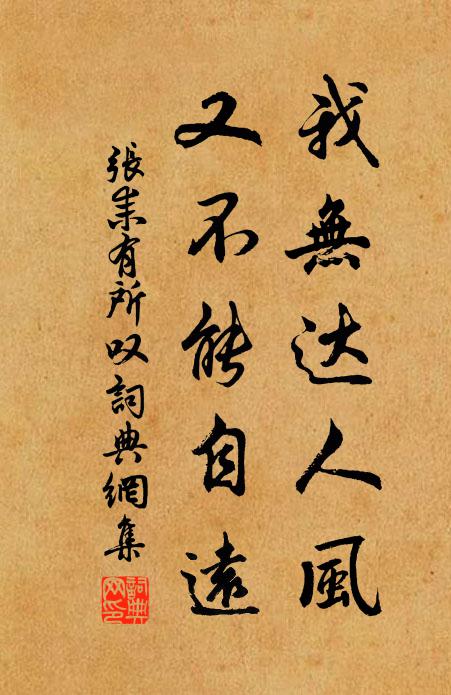 我無达人風
又不能自遠
張耒有所叹詞典網集
詞典网印